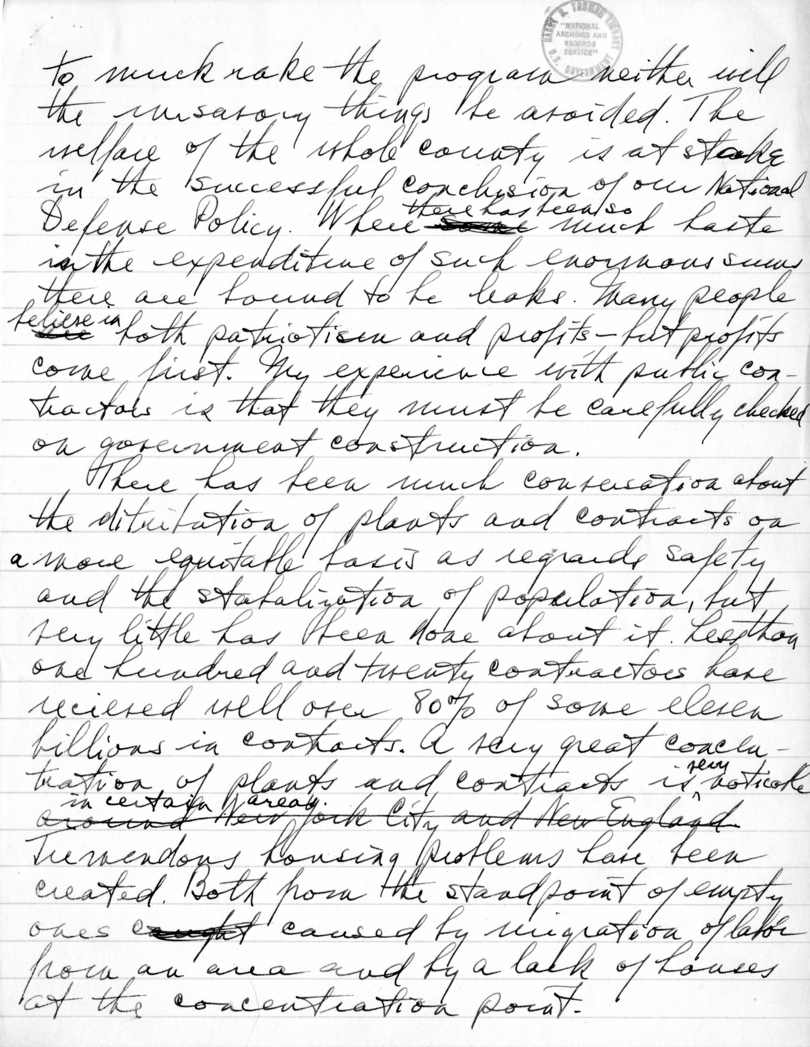 HARRY S. TRUMAN LIBRARY
"NATIONAL
ARCHIVES AND
RECORDS
SERVICE"
U.S. GOVERNMENT
to muck rake the program neither will
the unsavory things be avoided. The
welfare of the whole county is at stake
in the successful conclusion of our National
there has been so
Defense Policy. Where some much haste
in the expenditure of such enormous sums
there are bound to be leaks. Many people
believe in
are both patriotism and profits – but profits
come first. My experience with public con-
tractors is that they must be carefully checked
on government construction.
There has been much conversation about
the ditribution of plants and contracts on
a more equitable basis as regards safety
and the stabalization of population, but
very little has been done about it. Less than
one hundred and twenty contractors have
recieved well over 80% of some eleven
billions in contracts. A very great concen-
tration of plants and contracts is very noticable
in certain areas.
around New York City and New England
Tremendous housing problems have been
created. Both from the standpoint of empty
ones caught caused by migration of labor
from an area and by a lack of houses
at the concentration point.